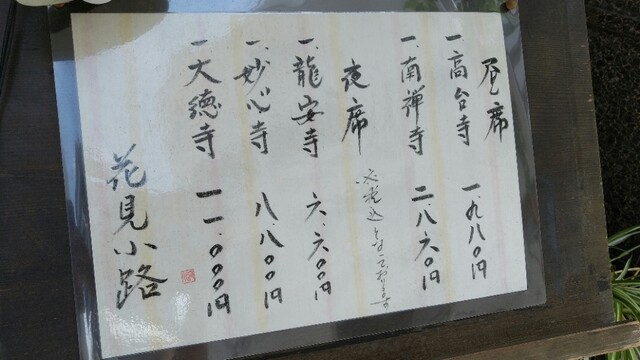 昼席
一、高台寺 一、九八〇円
一、南禅寺 二、八六〇円
夜席
※税込となっております
一、龍安寺 六、六〇〇円
一、妙心寺 八、八〇〇円
一、大徳寺 一一、〇〇〇円
花見小路